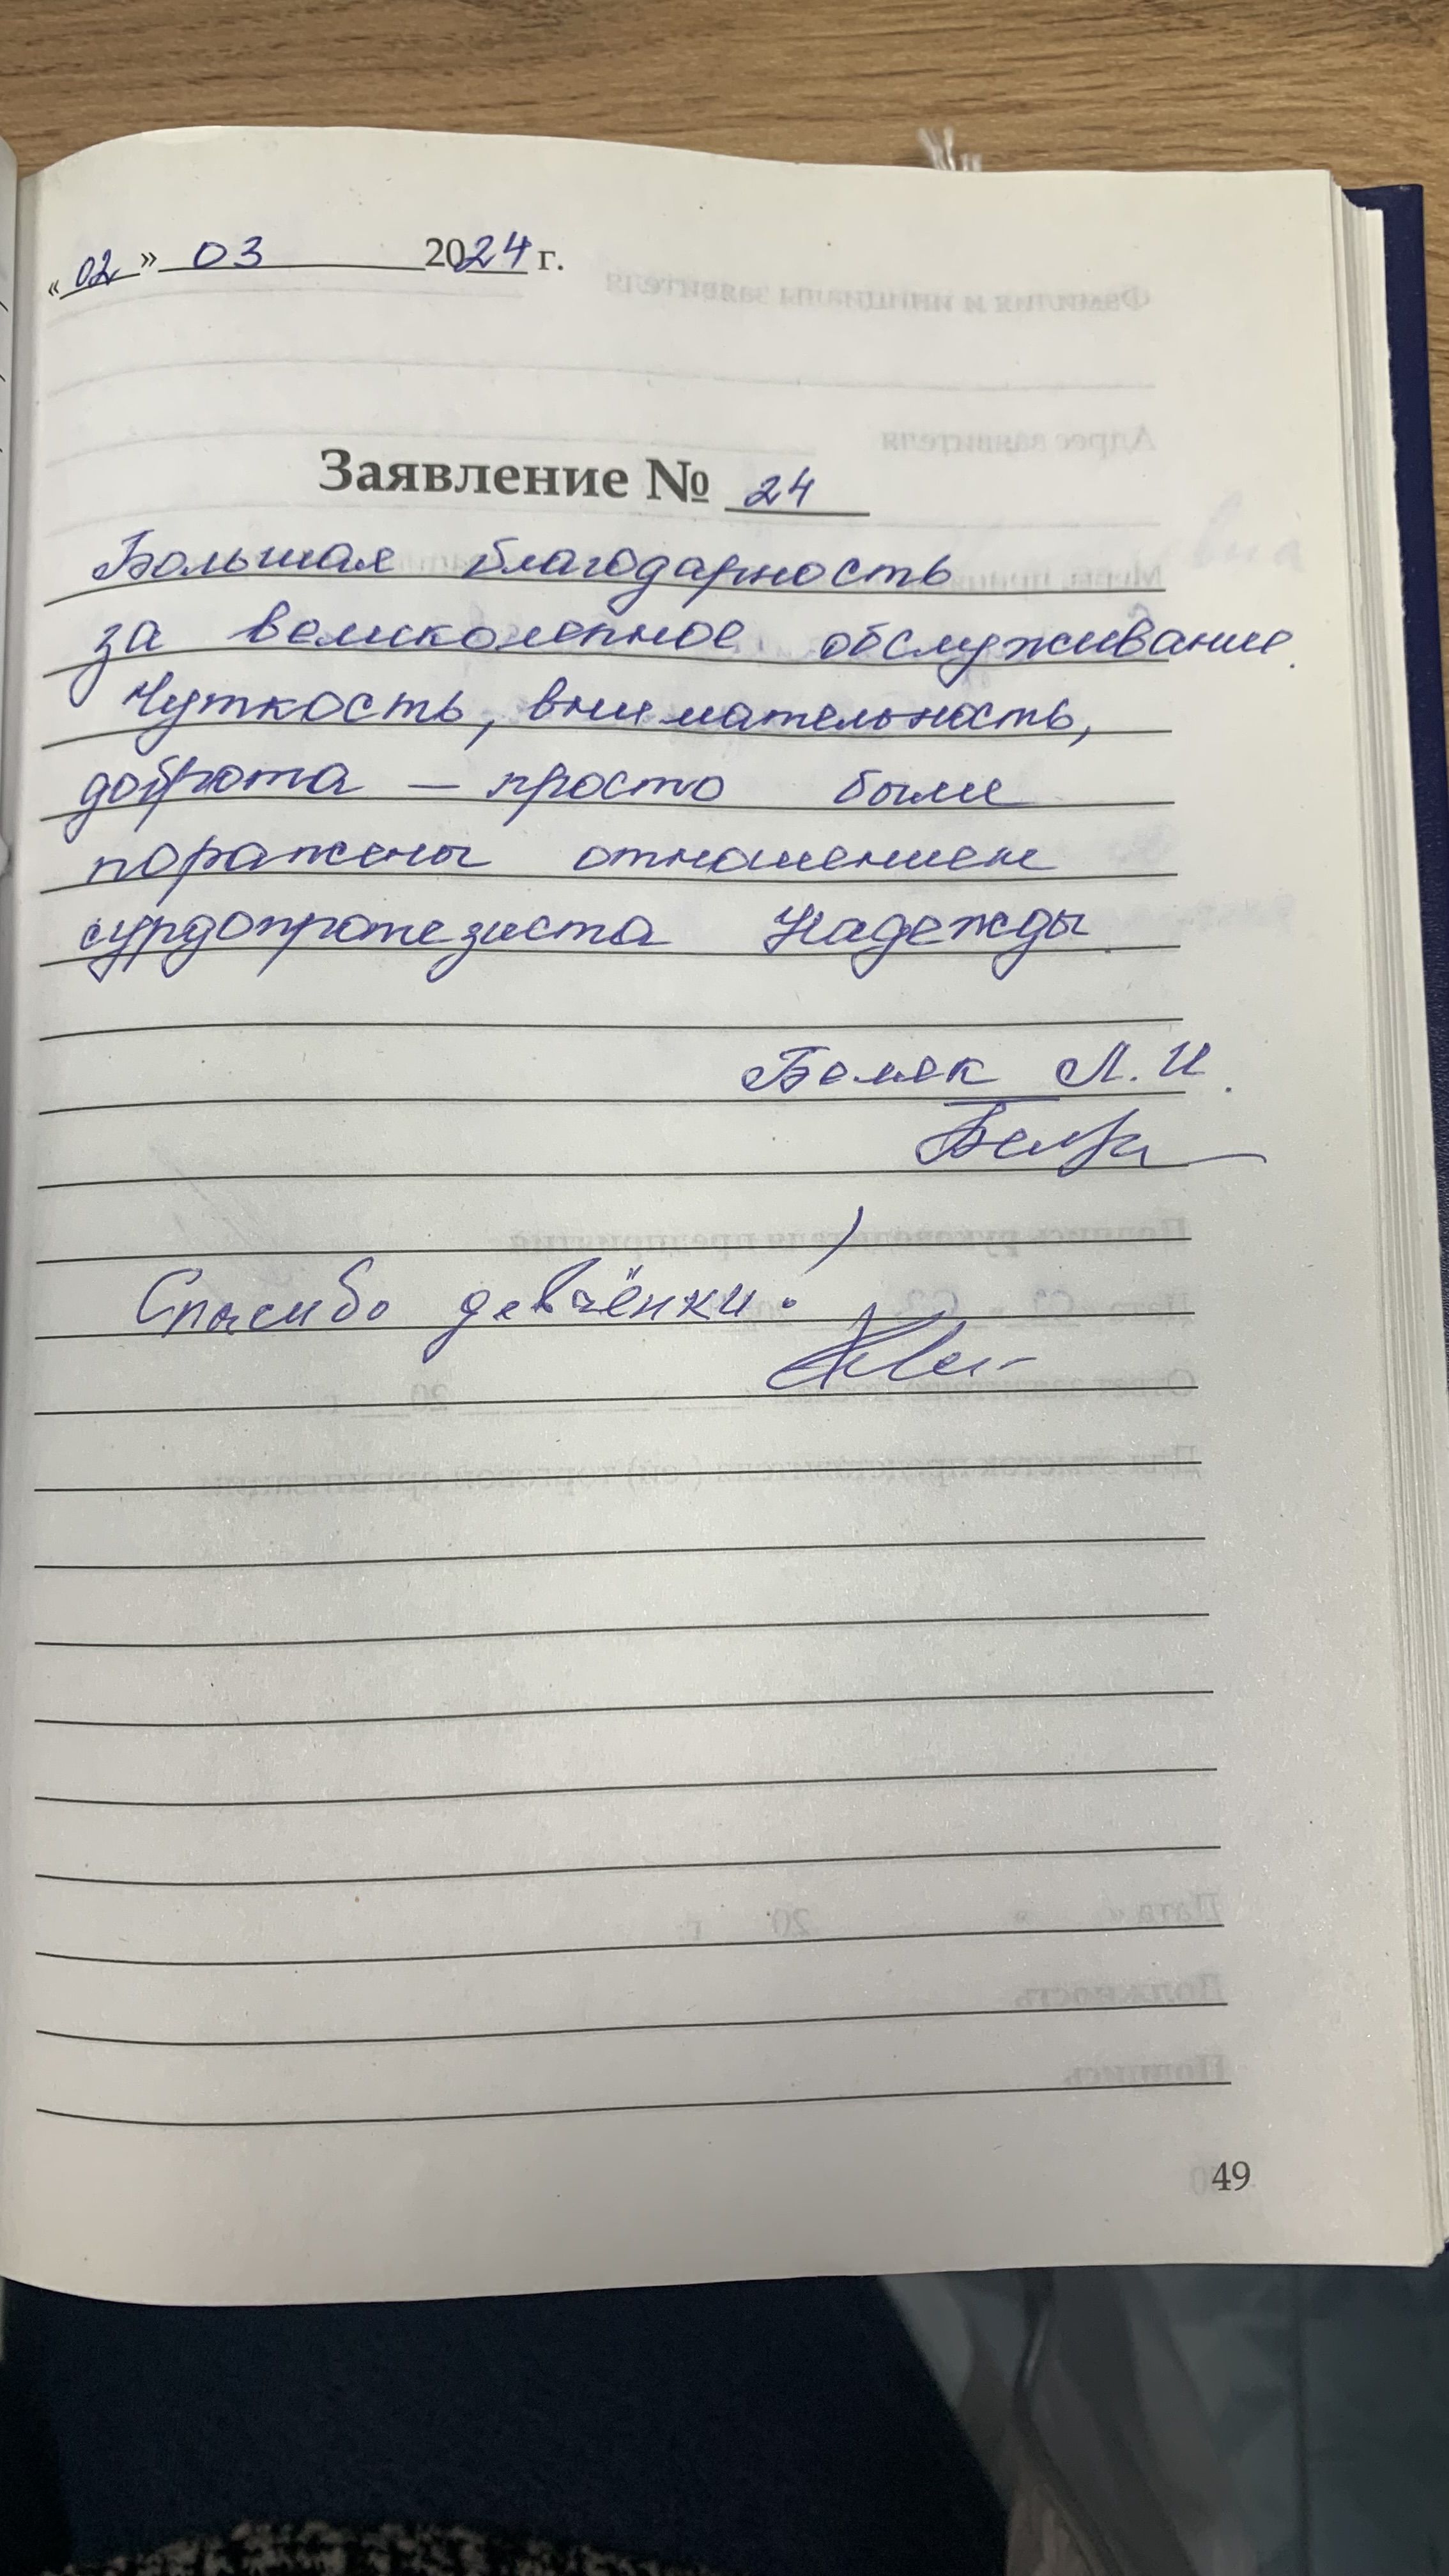 «02» 03 2024 г.
Заявление № 24
Большая благодарность
за великолепное обслуживание.
Чуткость, внимательность,
доброта — просто были
поражены отношением
сурдопротезиста Надежды.
Л. И.
Спасибо девчёнки!
49